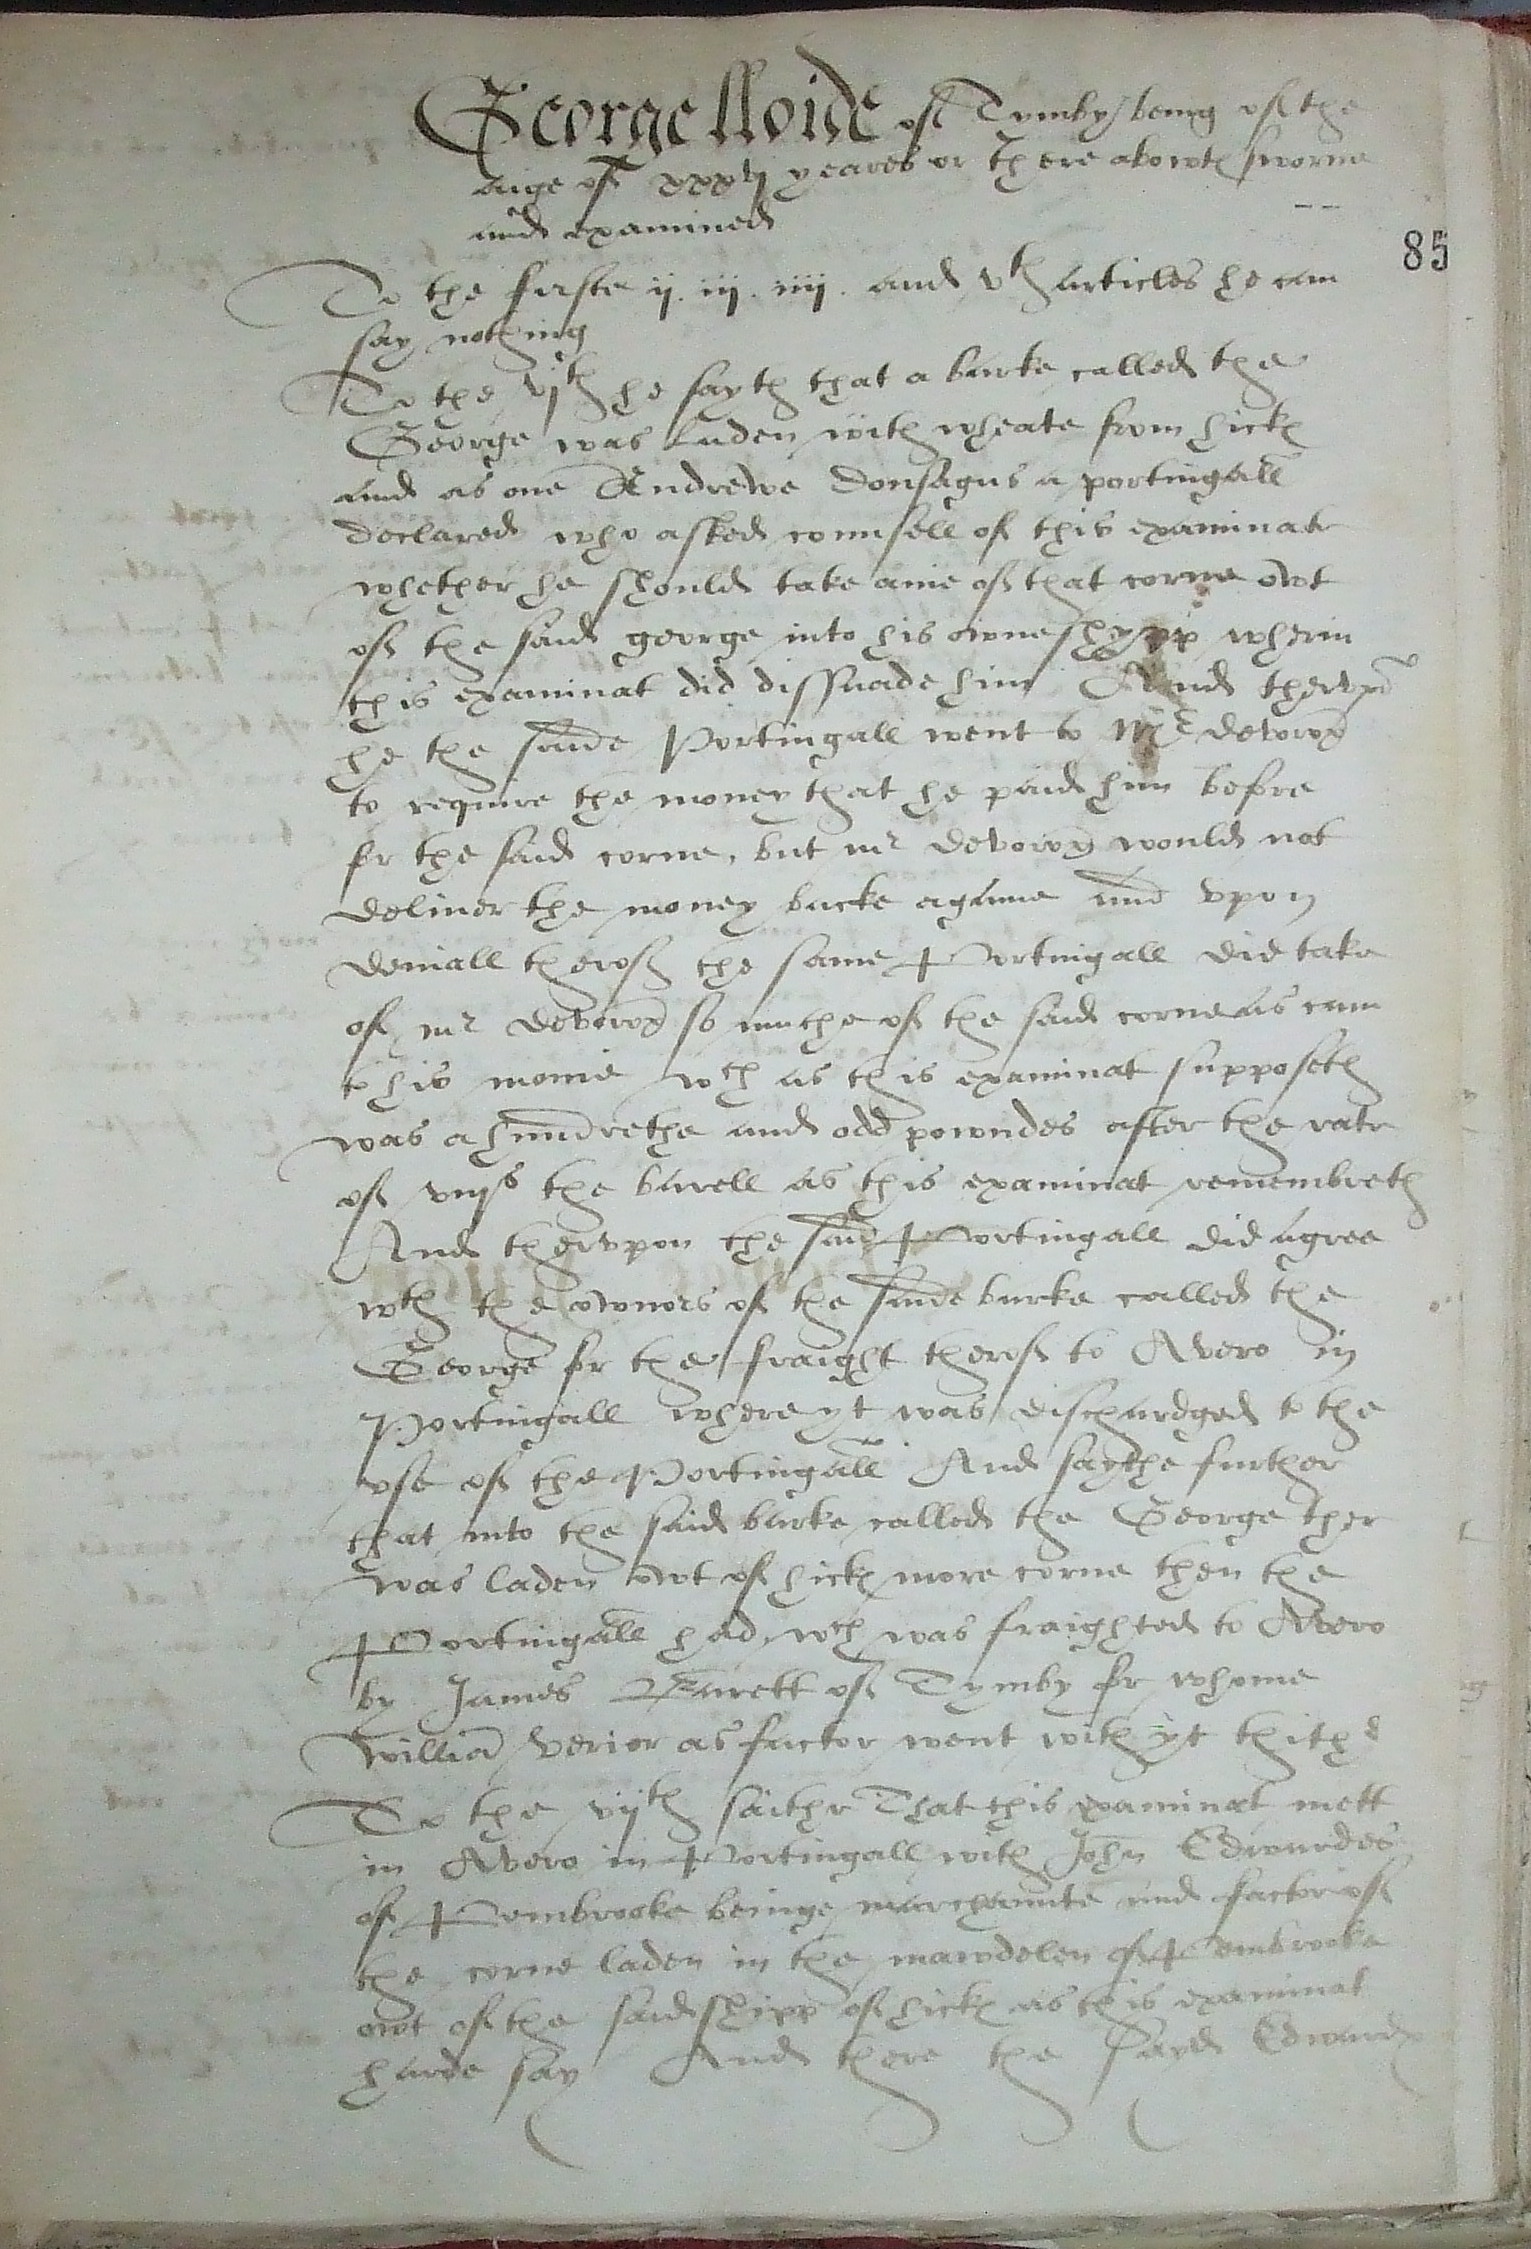 George lloide of Tymby being of the
aige of xxxvj yeares or there abowt sworne
and examined
85
To the firste ij. iij. iiij. and vth articles he can
say nothing
To the vjth he sayth that a barke called the
George was laden with wheate from hick
And as one Andrewe Gonsagus a portingall
declared who asked counsell of this examinat
whether he should take anie of that corne owt
of the said george into his owne shypp wherin
this examinat did dissuade him And thervpō
he the saide Portingall went to Mr
to require the money that he paid him before
for the said corne, but mr would not
deliuer the money backe againe and vpon
deniall therof the same Portingall did take
of mr so muche of the said corne as cam
to his monie wch as this examinat supposeth
was a hundrethe and odd powndes after the rate
of viijs the barell as this examinat remembreth
And thervpon the said Portingall did agree
wth the owners of the saide barke called the
George for the fraight therof to Avero in
Portingall where yt was dischardged to the
vse of the Portingall And saythe further
that into the said barke called the George ther
was laden owt of hick more corne then the
Portingall had, wch was fraighted to Avero
by James Barrett of Tymby for whome
Williā Verior as factor went with yt thither
To the vijth saithe That this examinat mett
in Avero in Portingall with John Edwardes
of Pembrooke beinge marchannte and factor of
the corne laden in the mawdelen of Pembrooke
owt of the said shipp of hick as this examinat
harde say And there the sayd Edwardes